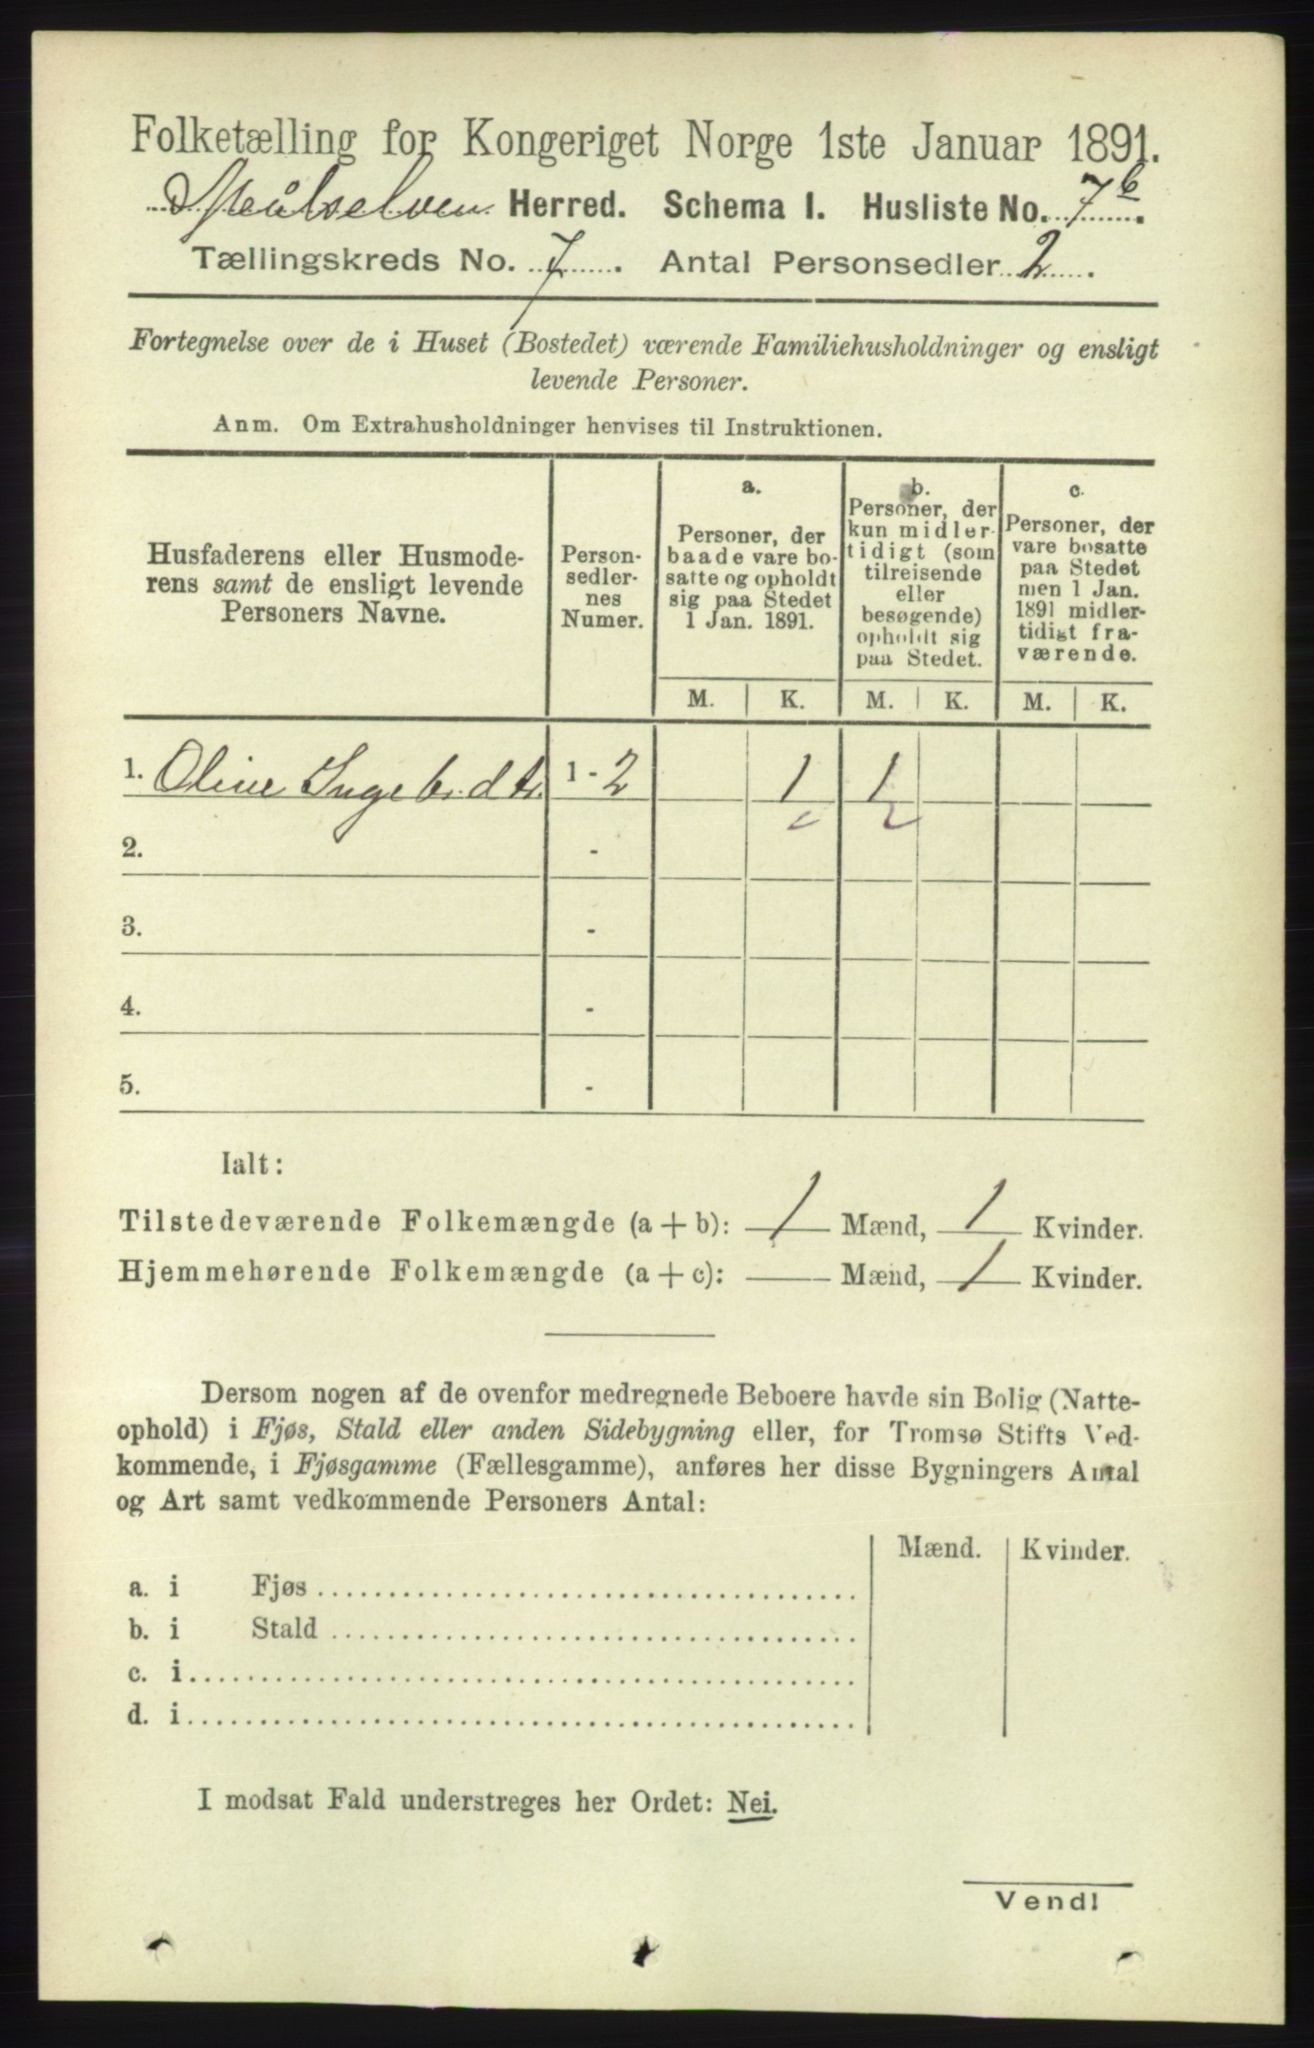 Folketælling for Kongeriget Norge 1ste Januar 1891.
Målselven Herred. Schema I. Husliste No. 7b.
Tællingskreds No. 7. Antal Personsedler 2.
Fortegnelse over de i Huset (Bostedet) værende Familiehusholdninger og ensligt
levende Personer.
Anm. Om Extrahusholdninger henvises til Instruktionen.
Husfaderens eller Husmode-
rens samt de ensligt levende
Personers Navne.
Person-
sedler-
nes
Numer.
a.
Personer, der
baade vare bo-
satte og opholdt
sig paa Stedet
1 Jan. 1891.
b.
Personer, der
kun midler-
tidigt (som
tilreisende
eller
besøgende)
opholdt sig
paa Stedet.
c.
Personer, der
vare bosatte
paa Stedet
men 1 Jan.
1891 midler-
tidigt fra-
værende.
M. K. M. K. M. K.
1. Oline Ingebr.dtr. 1 - 2 1 1
2. -
3. -
4. -
5. -
Ialt:
Tilstedeværende Folkemængde (a + b): 1 Mænd, 1 Kvinder.
Hjemmehørende Folkemængde (a + c): Mænd, 1 Kvinder.
Dersom nogen af de ovenfor medregnede Beboere havde sin Bolig (Natte-
ophold) i Fjøs, Stald eller anden Sidebygning eller, for Tromsø Stifts Ved-
kommende, i Fjøsgamme (Fællesgamme), anføres her disse Bygningers Antal
og Art samt vedkommende Personers Antal:
Mænd. Kvinder.
a. i Fjøs
b. i Stald
c. i
d. i
I modsat Fald understreges her Ordet: Nei.
Vend!